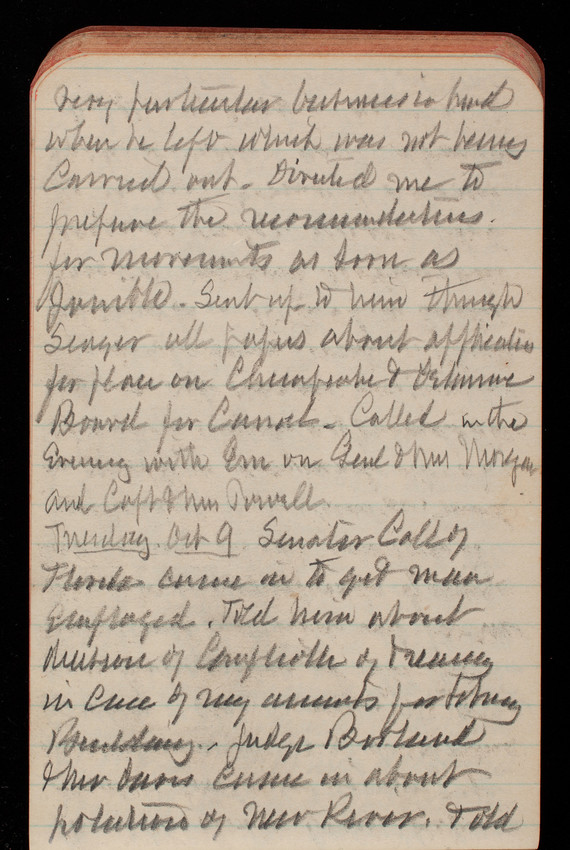 very particular business in hand
when he left which was not being
Carried out. Directed me to
prepare the recommendations.
for movements as soon as
possible. Sent up to him through
Seager all papers about application
for place on Chesapeake & Delaware
Board for Canal. Called in the
Evening with Em on Genl & Mrs Morgan
and Capt & Mrs Powell
Tuesday Oct 9 Senator Call of
Florida came in to get man
Employed. Told him about
decision of Comptroller of Treasury
in Case of my accounts for Library
Building. Judge Borland
& Mr Davis came in about
pollution of New River. Told